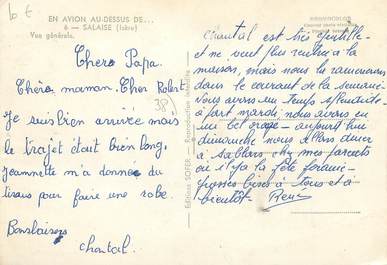 10 €
EN AVION AU-DESSUS DE...
6 — SALAISE (Isère)
Vue générale.
Chers Papa.
Chère maman. Cher Robert
38)
Je suis bien arrivée mais
le trajet était bien long.
Jeannette m'a donnée du
tissus pour faire une robe.
Bons baisers
Chantal.
Editions SOFER. Reproduction interdite
Chantal est très gentille
et ne veut plus rentrer à la
maison, mais nous la ramènerons
dans le courant de la semaine
Nous avons un temps splendide
à part mardi nous avons eu
un bel orage - aujourd'hui
dimanche nous allons dîner
à Sablons chez mes parents
où il y a la fête foraine
bises à tous et à
bientôt. René